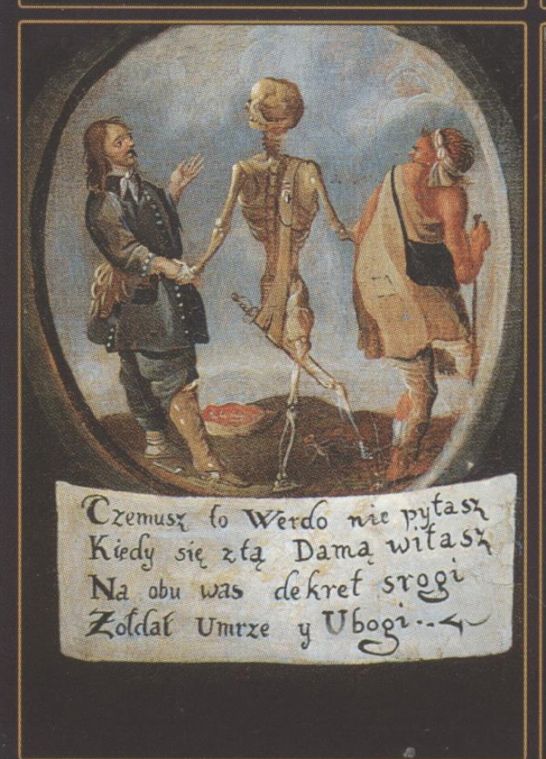 Czemusz to Werdo nie pytasz
Kiedy się z tą Damą witasz
Na obu was dekret srogi
Żołdat Umrze y Ubogi..